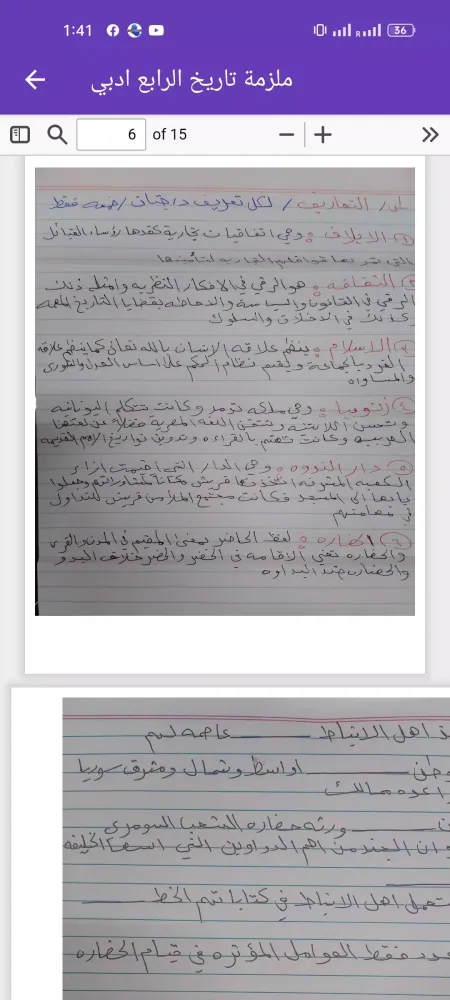 1:41
36
ملزمة تاريخ الرابع ادبي
6 of 15
س/ التعاريف / لكل تعريف درجتان / خمسه فقط
① الايلاف : وهي اتفاقيات تجارية كقدها رؤساء القبائل
التي تمر بها قوافلهم التجاريه لتأمينها
الثقافه : هو الرقي في الافكار النظريه وامثله ذلك
الرقي في القانون والسياسة والاحاطه بقضايا التاريخ المهمه
وكذلك في الاخلاق والسلوك
③ الاسلام : ينظم علاقه الانسان بالله تعالى كما ينظم علاقه
الفرد بالجماعة ويقيم نظام الحكم على اساس العدل والشورى
والمساواه
④ زنوبيا : وهي ملكه تدمر وكانت تتكلم اليونانيه
وتحسن اللاتينيه وتتقن اللغه المصرية فضلاً عن لغتها
العربيه وكانت تهتم بالقراءه وتدوين تواريخ الامم القديمه
⑤ دار الندوه : وهي الدار التي اقيمت ازاء
الكعبه المشرفه اتخذتها قريش مكاناً وجعلوا
بابها الى المسجد فكانت مجتمع الملا من قريش للتداول
في
⑥ الحضاره : لفظ الحاضر بمعنى المقيم في المدن والقرى
والحضاره تعني الاقامه في الحضر والحضر خلاف البدو
والحضاره ضد البداوه
اهل الانباط ــــــ عاصمه لهم
ــــــ اواسط وشمال ومشرق سوريا
عده ممالك
ــــــ ورثه حضاره الشعب السومري
ان الجند من اهم الدواوين التي اسسها الخليفه
اهل الانباط في كتاباتهم الخط ــــــ
فقط العوامل المؤثره في قيام الحضاره